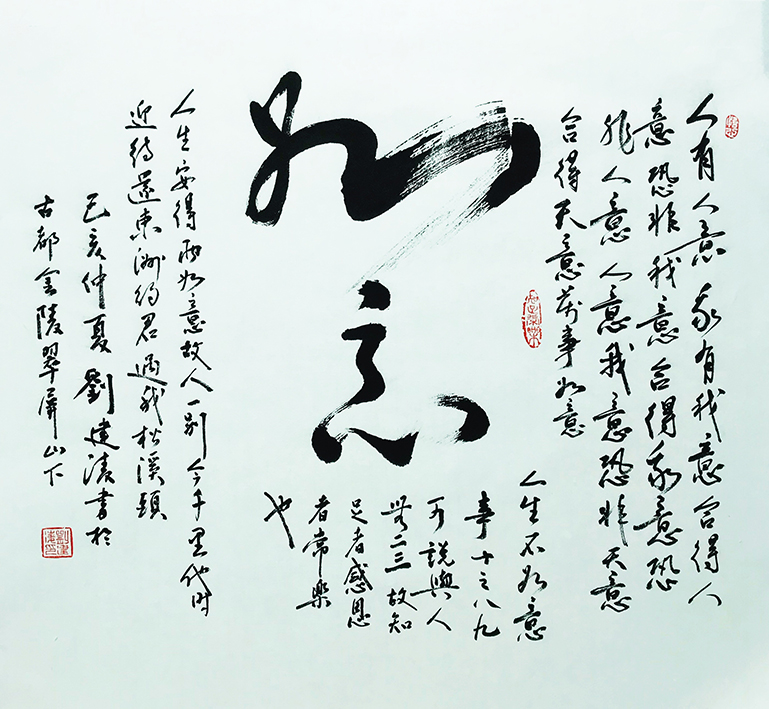 人有人意我有我意合得人
意恐非我意合得我意恐
非人意人意我意恐非天意
合得天意萬事如意
如意
人生不如意
事十之八九
可說與人
無二三故知
足者感恩
者常樂
也
人生安得兩如意故人一別今千里他時
迎待還東洲約君過我松溪頭
己亥仲夏劉建清書於
古都金陵翠屏山下